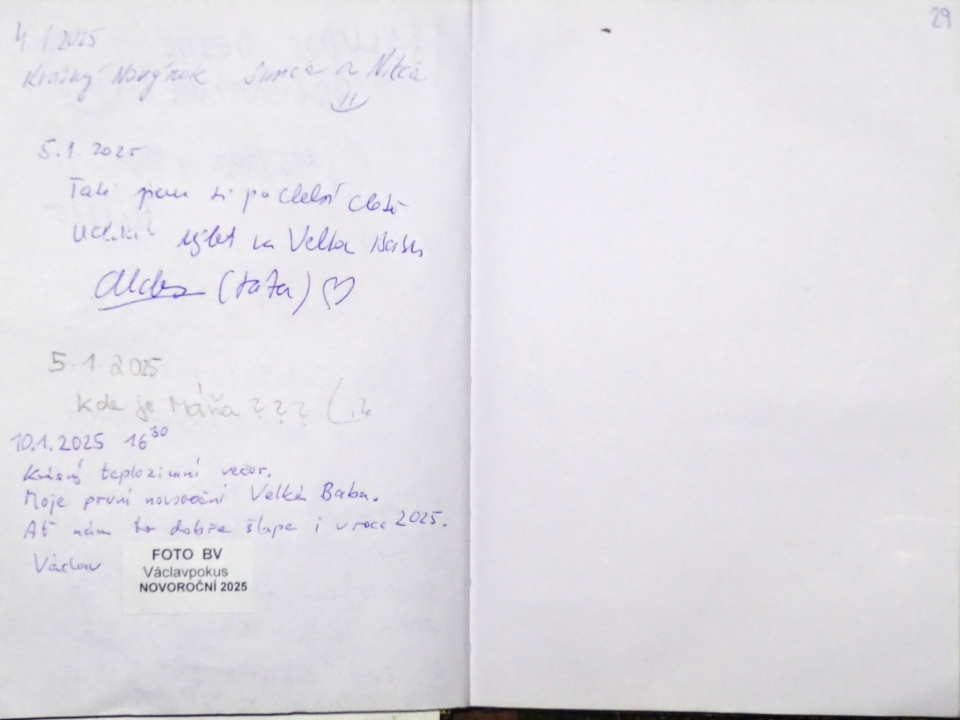 29
4.1.2025
Krásný Nový rok Simča a
5.1.2025
Tak jsem si po
výlet na Velkou Babu
(táta)
5.1.2025
Kde je Máňa ? ? ?
10.1.2025 16 30
Krásný teplozimní večer.
Moje první novoroční Velká Baba.
Ať nám to dobře šlape i v roce 2025.
Václav
FOTO BV
Václavpokus
NOVOROČNÍ 2025